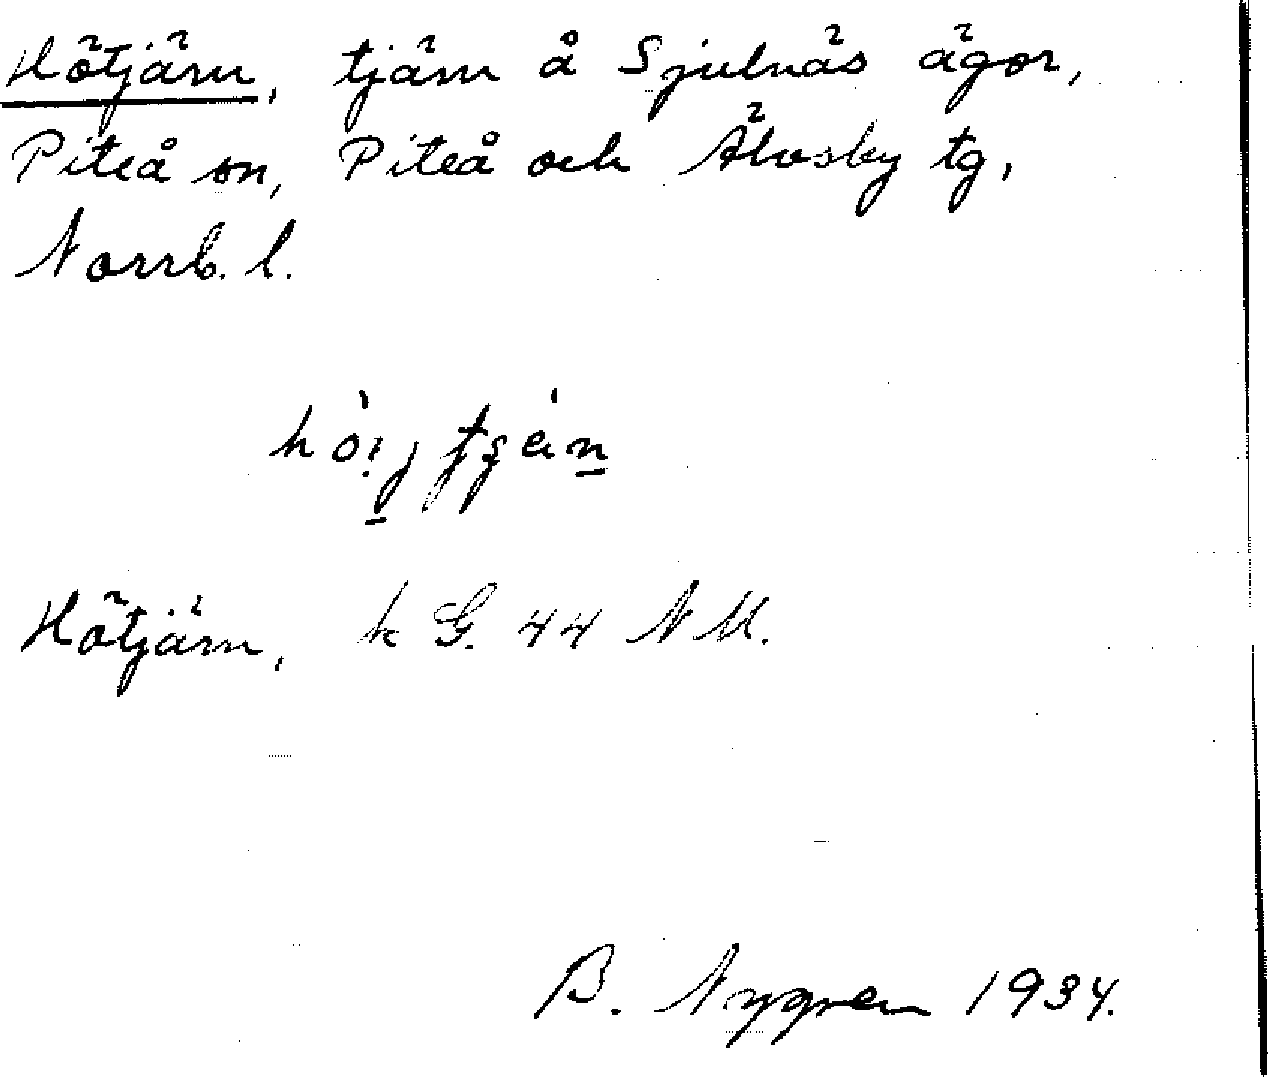 Hötjärn, tjärn å Sjulnäs ägor,
Piteå sn, Piteå och Älvsby tg,
Norrb. l.
Hötjärn, k G. 44 NM.
B. Nygren 1934.